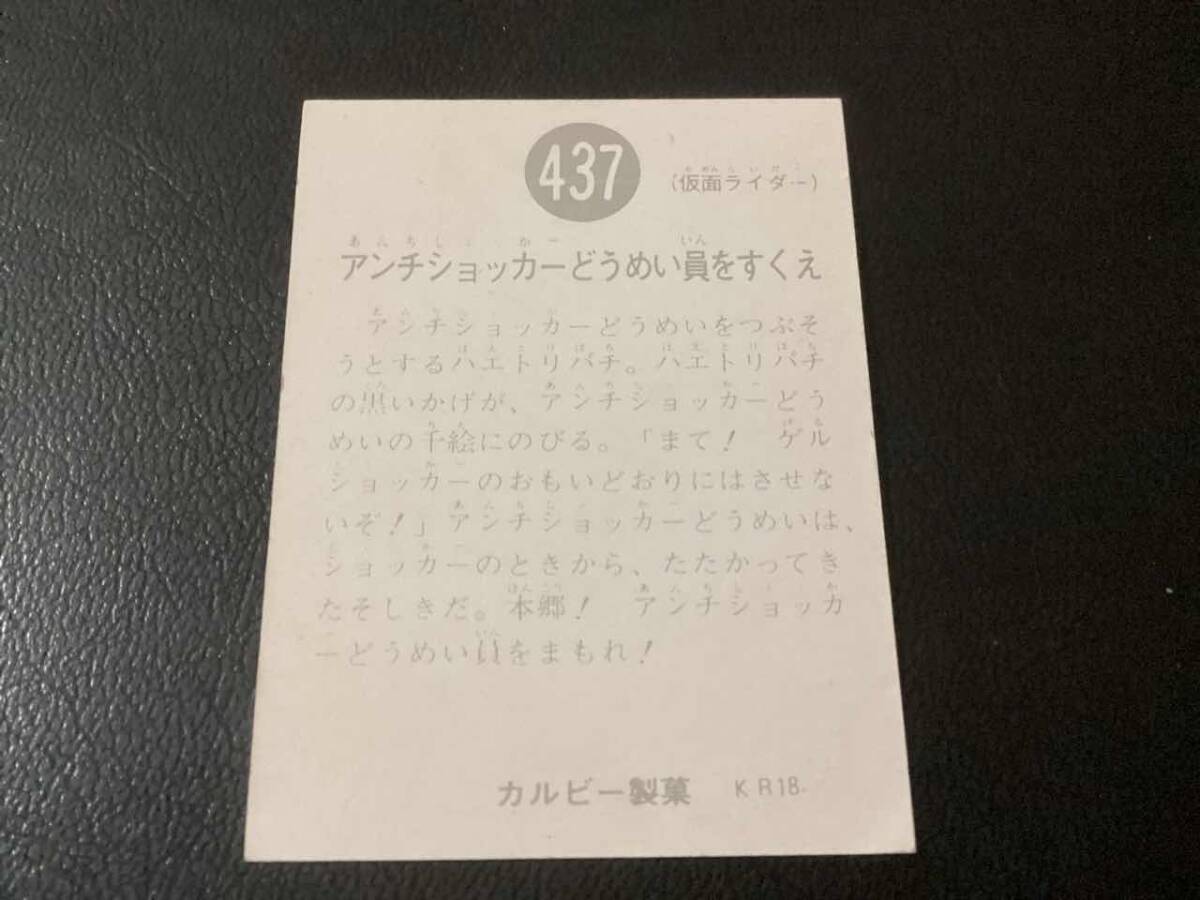 437
(仮面ライダー)
アンチショッカーどうめい員をすくえ
アンチショッカーどうめいをつぶそ
うとするハエトリバチ。ハエトリバチ
の黒いかげが、アンチショッカーどう
めいの千絵にのびる。「まて！　ゲル
ショッカーのおもいどおりにはさせな
いぞ！」アンチショッカーどうめいは、
ショッカーのときから、たたかってき
たそしきだ。本郷！　アンチショッカ
ーどうめい員をまもれ！
カルビー製菓　KR18